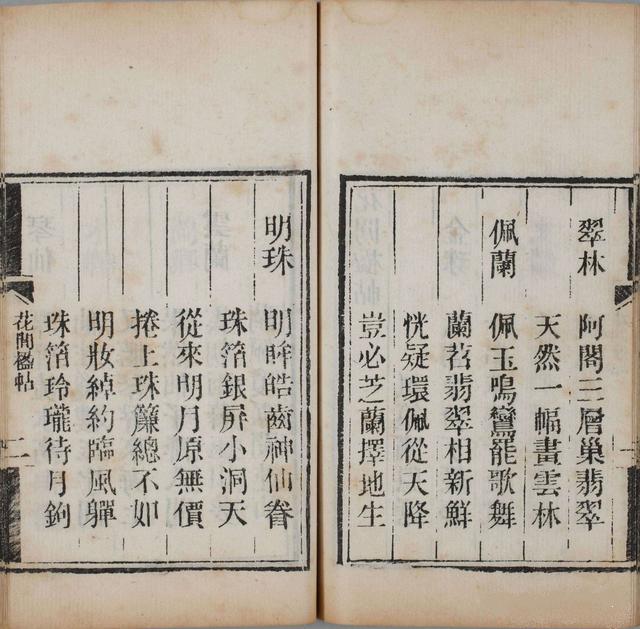 翠林 阿閣三層巢翡翠
天然一幅畫雲林
佩蘭 佩玉鳴鸞罷歌舞
蘭苕翡翠相新鮮
恍疑環佩從天降
豈必芝蘭擇地生
明珠 明眸皓齒神仙眷
珠箔銀屏小洞天
從來明月原無價
捲上珠簾總不如
明妝綽約臨風嚲
珠箔玲瓏待月鉤
花間楹帖 二